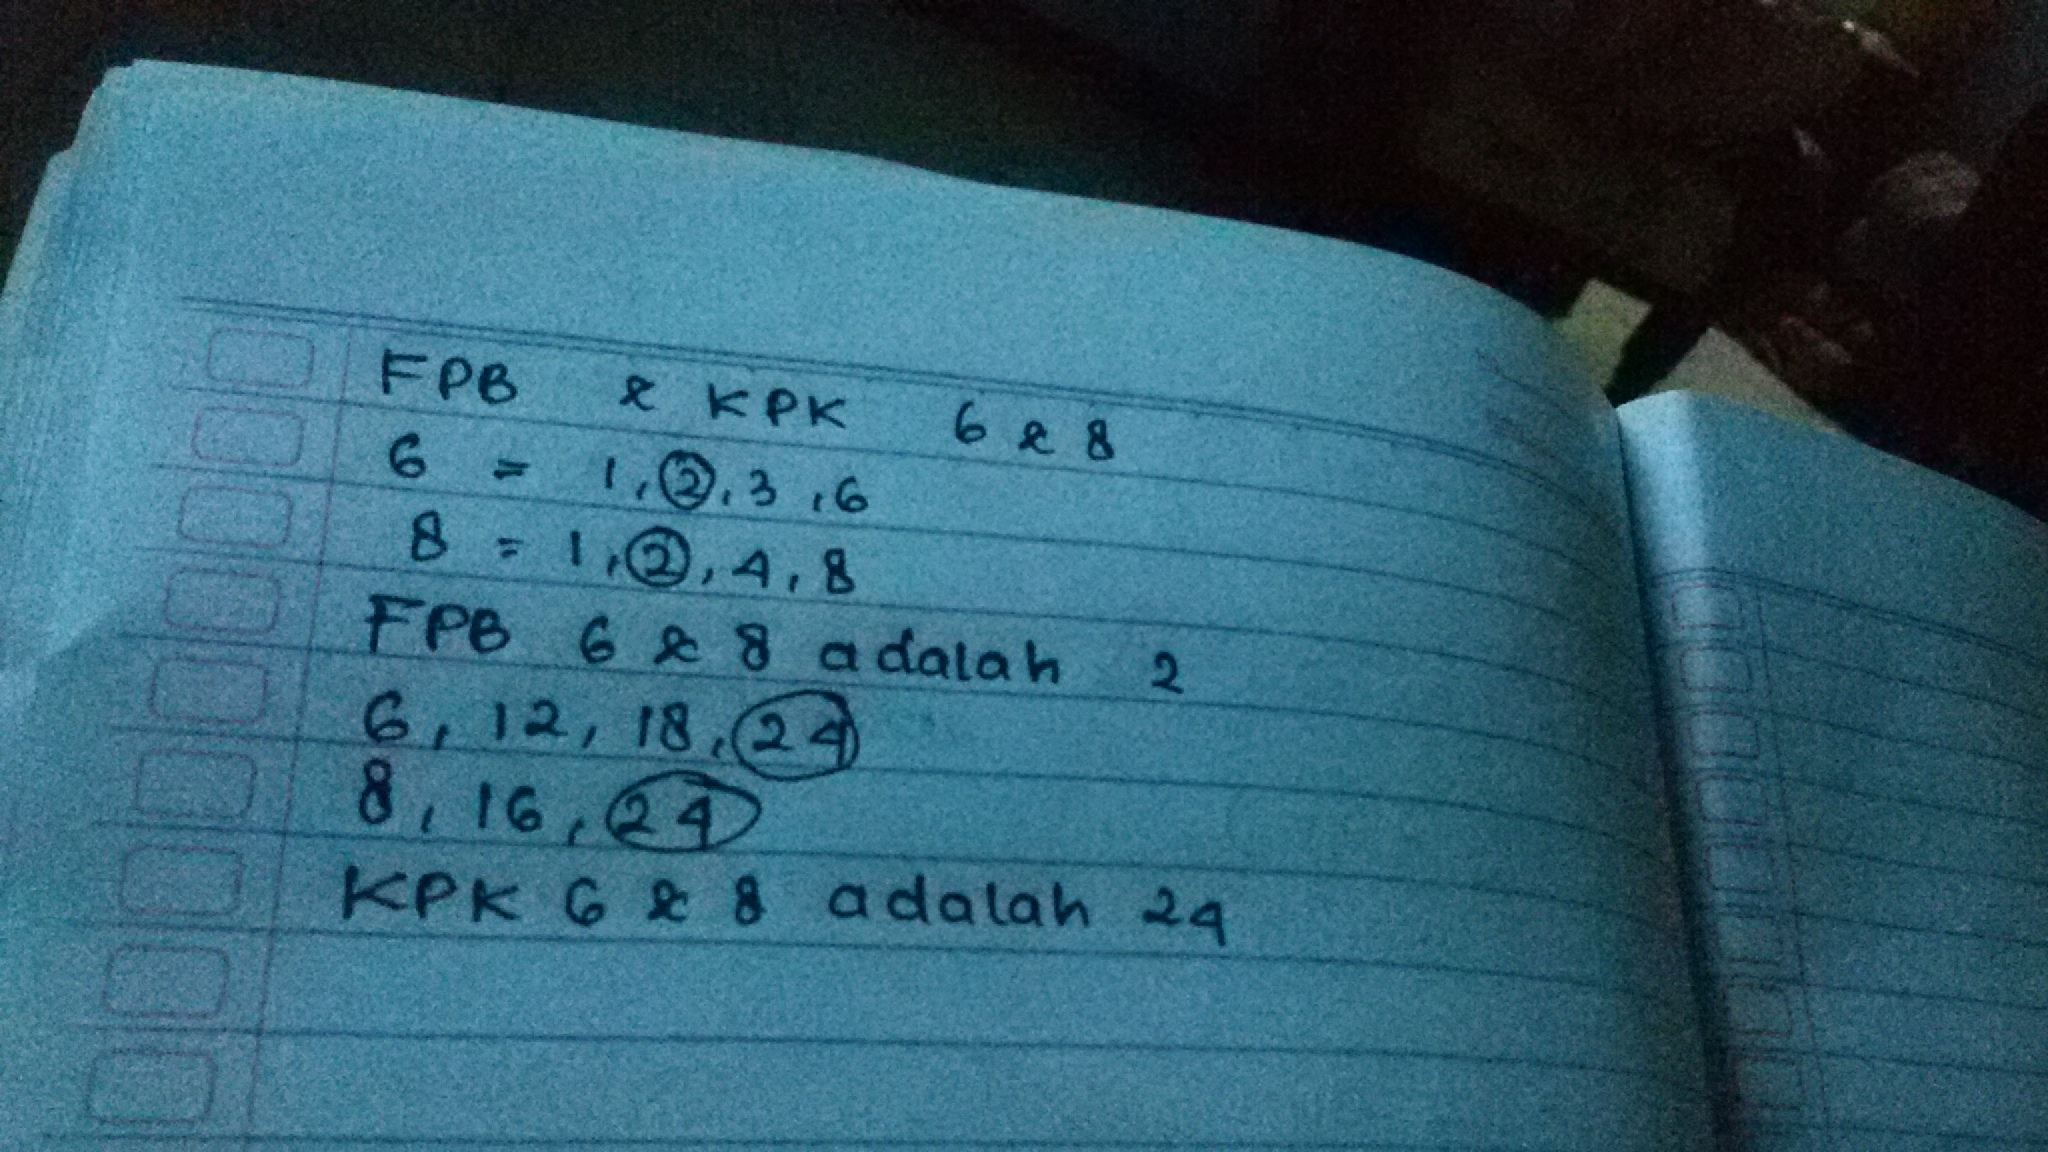 FPB & KPK 6 & 8
6 = 1, 2, 3, 6
8 = 1, 2, 4, 8
FPB 6 & 8 adalah 2
6, 12, 18, 24
8, 16, 24
KPK 6 & 8 adalah 24